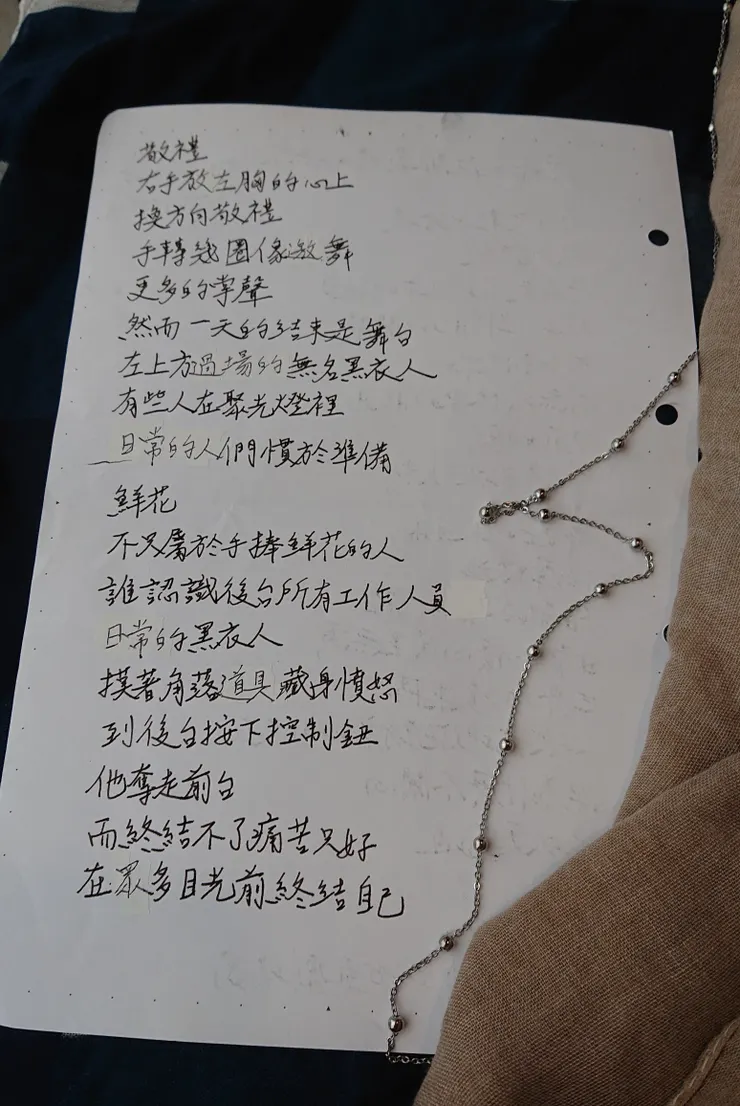 敬禮
右手放左胸的心上
換方向敬禮
手轉幾圈像激舞
更多的掌聲
然而一天的結束是舞台
左上方過場的無名黑衣人
有些人在聚光燈裡
日常的人們慣於準備
鮮花
不只屬於手捧鮮花的人
誰認識後台所有工作人員
日常的黑衣人
摸著角落道具藏身憤怒
到後台按下控制鈕
他奪走前台
而終結不了痛苦只好
在眾多目光前終結自己